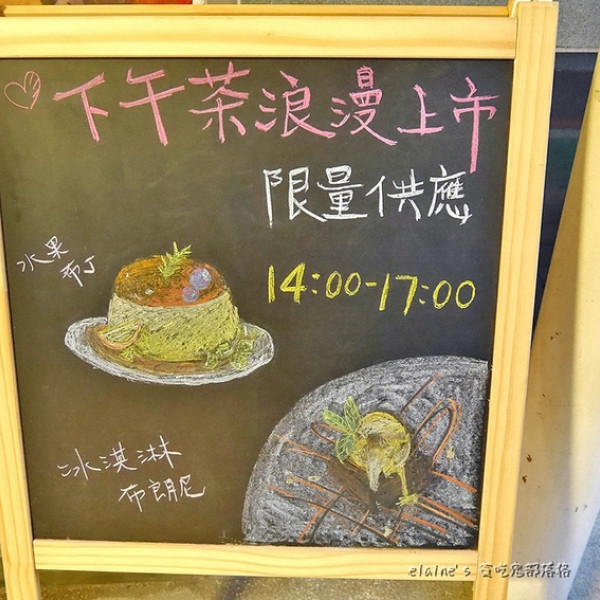 下午茶浪漫上市
限量供應
水果
布丁
14:00-17:00
冰淇淋
布朗尼
elaine's 貪吃鬼部落格